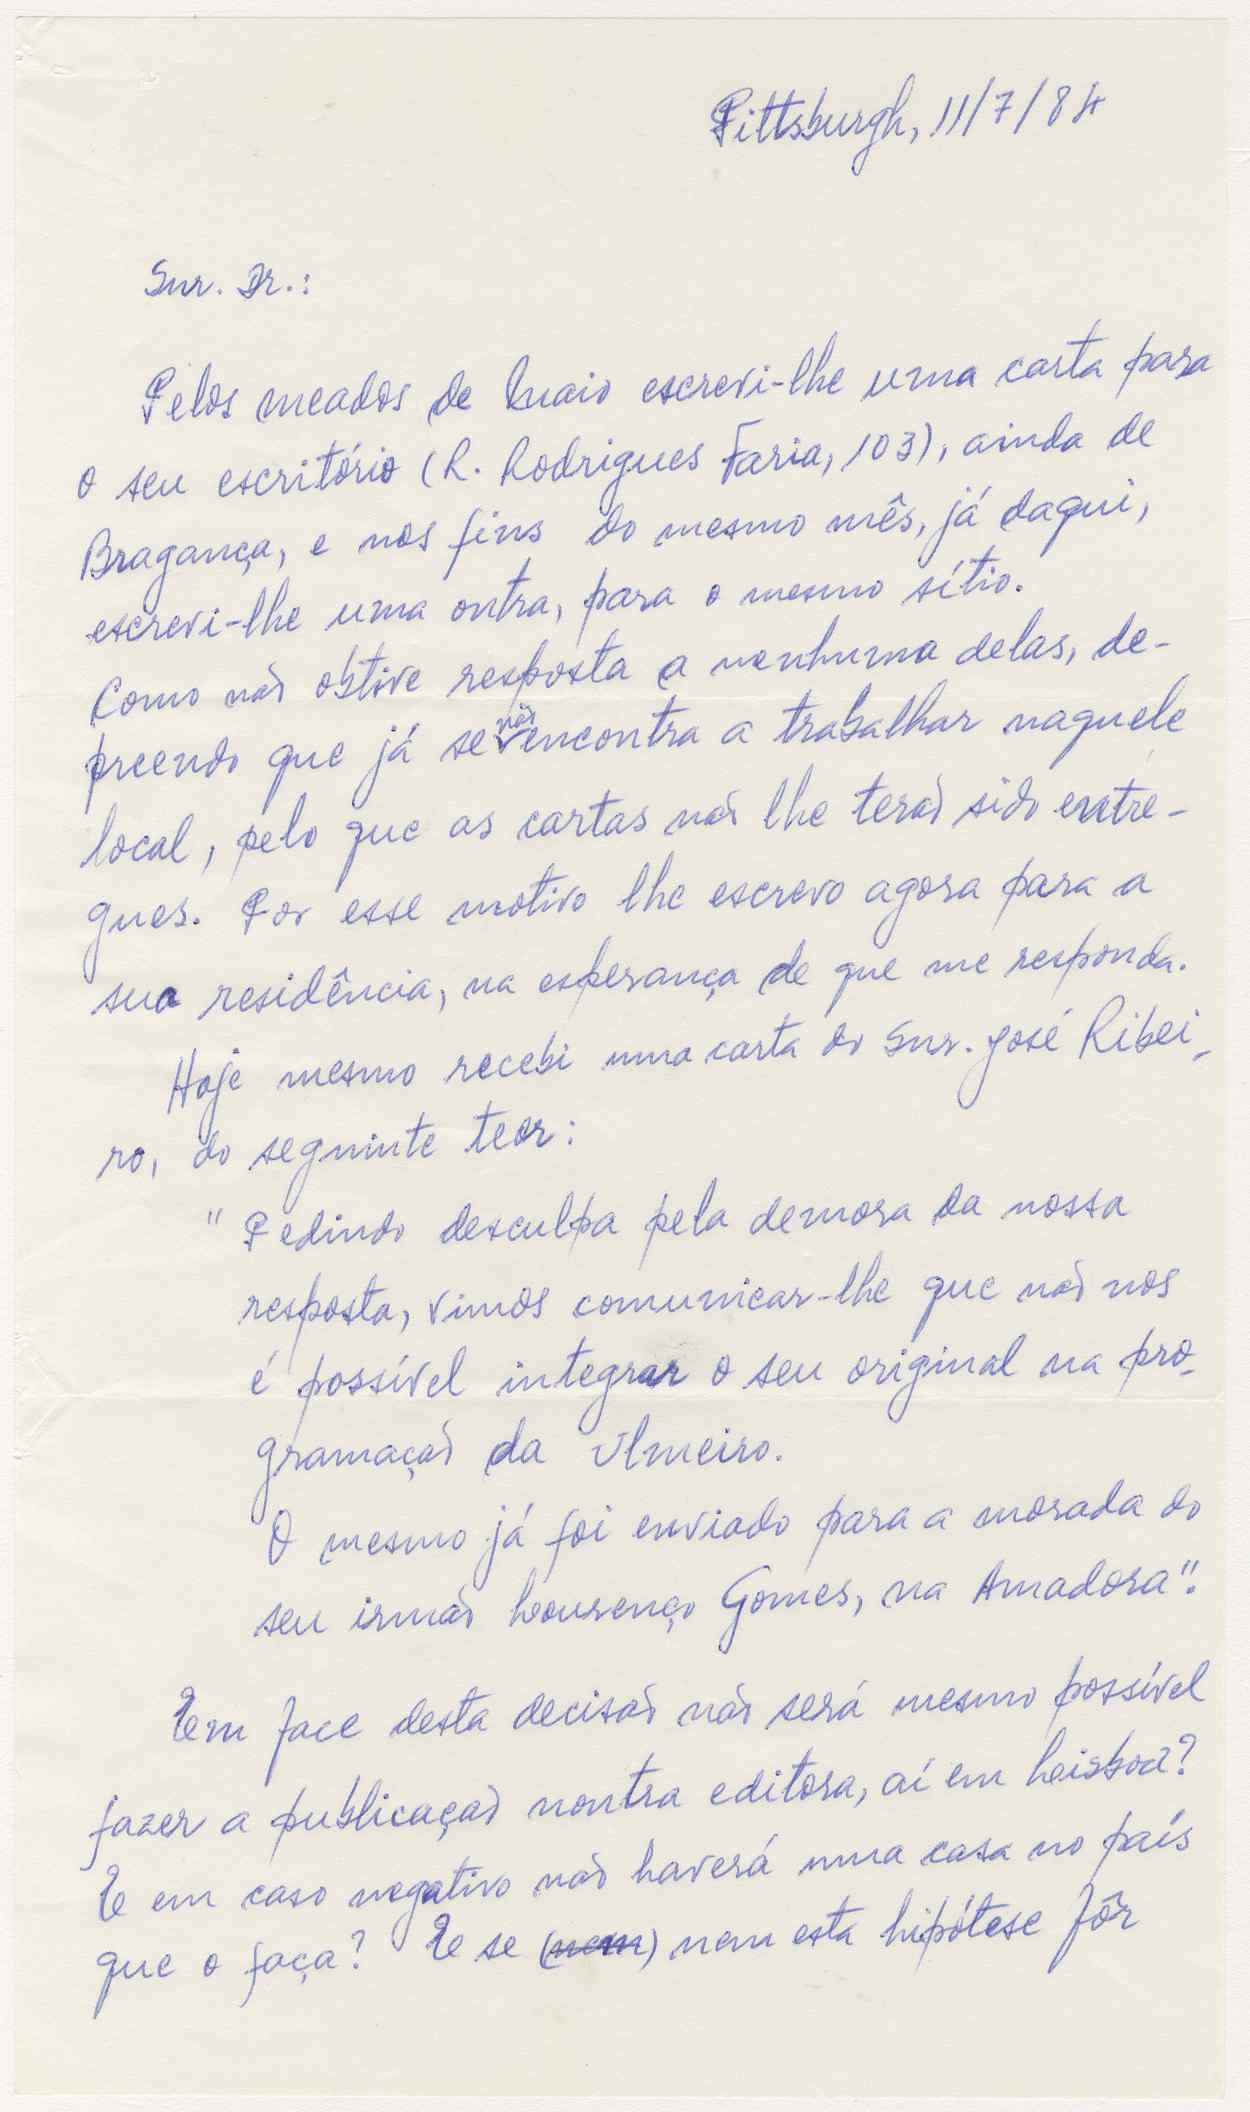 Pittsburgh, 11/7/84
Snr. Dr.:
Pelos meados de Maio escrevi-lhe uma carta para
o seu escritório (R. Rodrigues Faria, 103), ainda de
Bragança, e nos fins do mesmo mês, já daqui,
escrevi-lhe uma outra, para o mesmo sítio.
Como não obtive resposta a nenhuma delas, de-
preendo que já se não encontra a trabalhar naquele
local, pelo que as cartas não lhe terão sido entre-
gues. Por esse motivo lhe escrevo agora para a
sua residência, na esperança de que me responda.
Hoje mesmo recebi uma carta do Snr. José Ribei-
ro, do seguinte teor:
"Pedindo desculpa pela demora da nossa
resposta, vimos comunicar-lhe que não nos
é possível integrar o seu original na pro-
gramação da Ulmeiro.
O mesmo já foi enviado para a morada do
seu irmão Lourenço Gomes, na Amadora".
Em face desta decisão não será mesmo possível
fazer a publicação noutra editora, aí em Lisboa?
E em caso negativo não haverá uma casa no país
que o faça? E se (nem) nem esta hipótese fôr